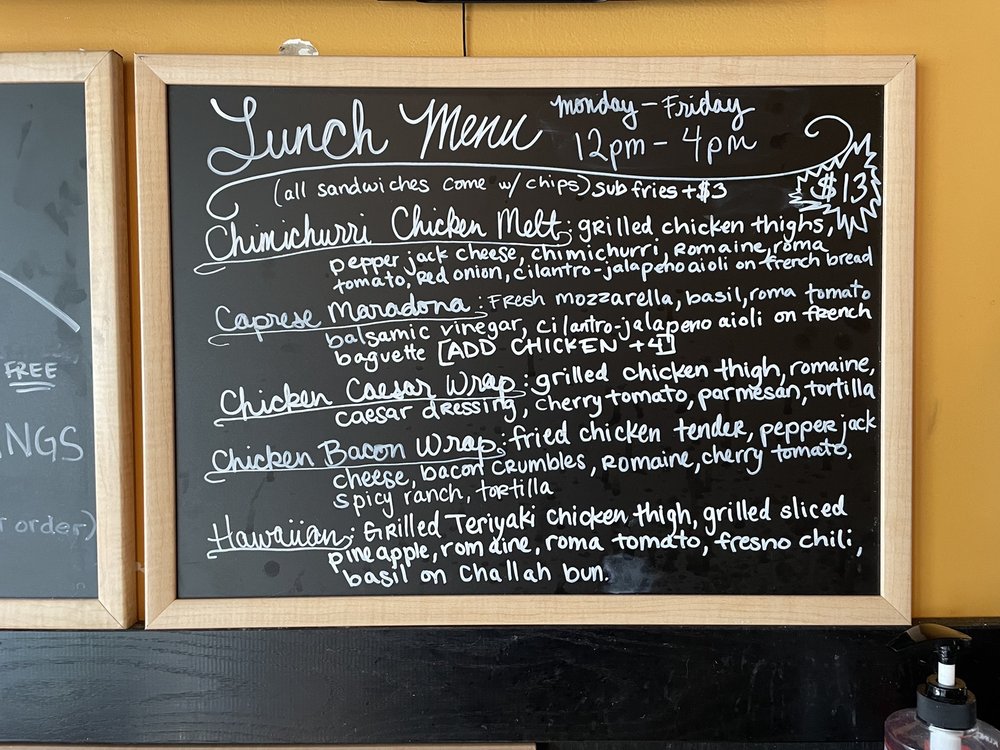 Lunch Menu Monday - Friday
12pm - 4pm
(all sandwiches come w/ chips) sub fries +$3
$13
Chimichurri Chicken Melt: grilled chicken thighs,
pepper jack cheese, chimichurri, Romaine, roma
tomato, Red onion, cilantro-jalapeño aioli on french bread
Caprese Maradona: Fresh mozzarella, basil, roma tomato
balsamic vinegar, cilantro-jalapeno aioli on french
baguette [ADD CHICKEN +4]
Chicken Caesar Wrap: grilled chicken thigh, romaine,
caesar dressing, cherry tomato, parmesan, tortilla
Chicken Bacon Wrap: fried chicken tender, pepper jack
cheese, bacon crumbles, Romaine, cherry tomato,
spicy ranch, tortilla
Hawaiian: Grilled Teriyaki chicken thigh, grilled sliced
pineapple, romaine, roma tomato, fresno chili,
basil on Challah bun.
FREE
INGS
order)